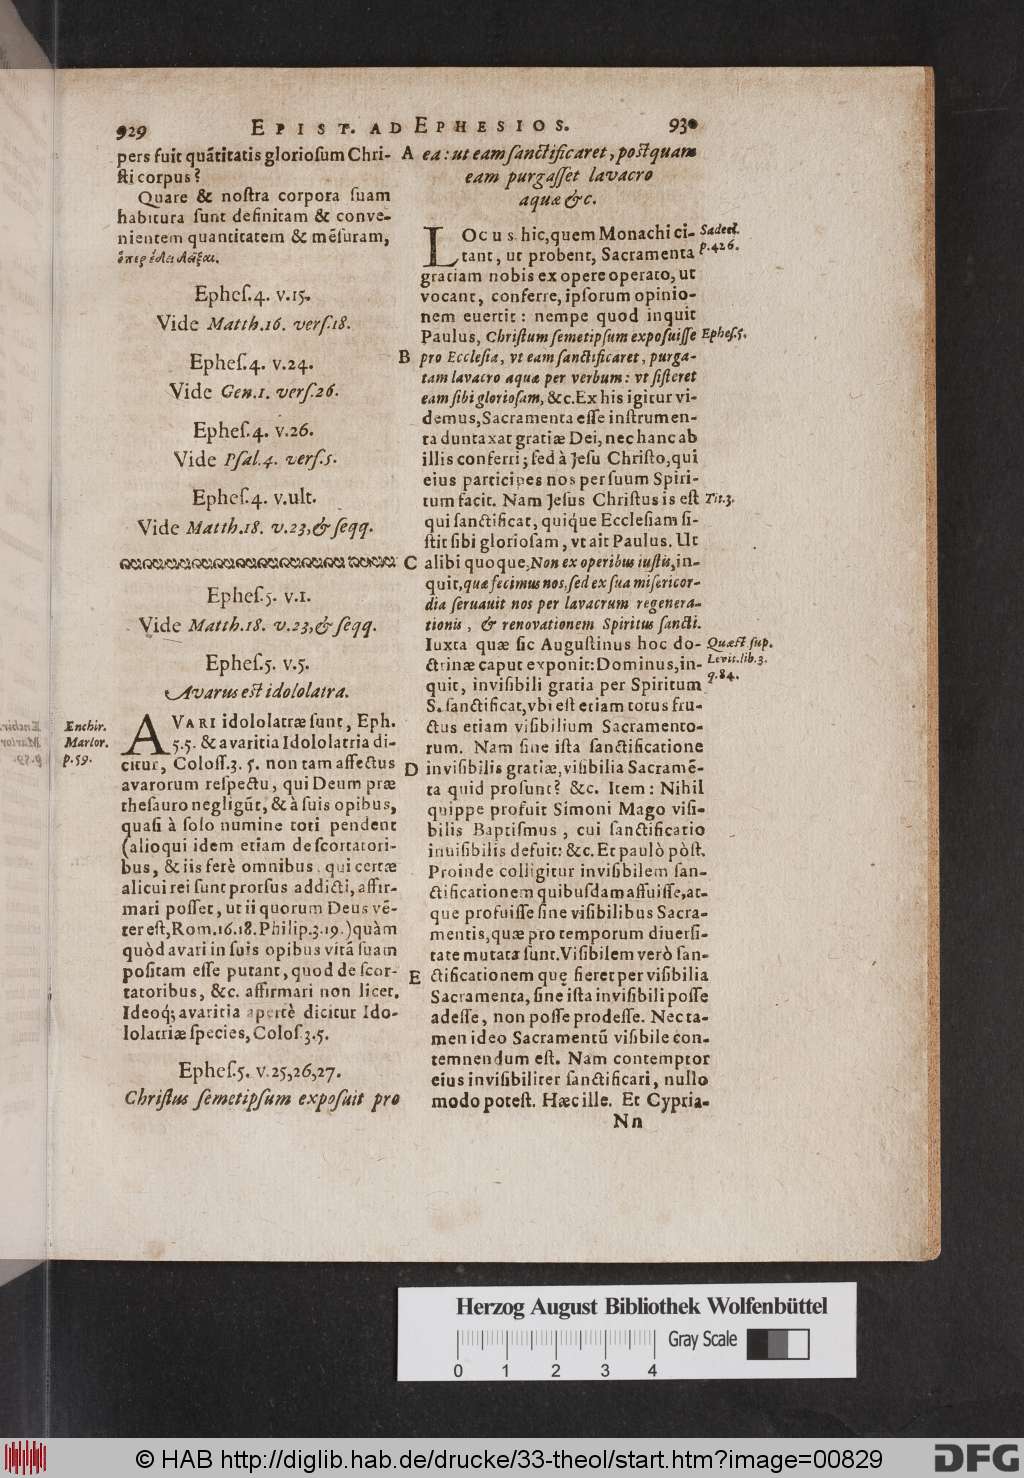 929 EPIST. AD EPHESIOS. 930
pers fuit quãtitatis glorioſum Chri-
ſti corpus?
Quare & noſtra corpora ſuam
habitura ſunt definitam & conve-
nientem quantitatem & mẽſuram,
Epheſ.4. v.15.
Vide Matth.16. verſ.18.
Epheſ.4. v.24.
Vide Gen.1. verſ.26.
Epheſ.4. v.26.
Vide Pſal.4. verſ.5.
Epheſ.4. v.ult.
Vide Matth.18. v.23,& ſeqq.
Epheſ.5. v.1.
Vide Matth.18. v.23,& ſeqq.
Epheſ.5. v.5.
Avarus eſt idololatra.
Enchir.
Marlor.
p.59.
AVARI idololatræ ſunt, Eph.
5.5. & avaritia Idololatria di-
citur, Coloſſ.3. 5. non tam affectus
avarorum reſpectu, qui Deum præ
theſauro negligũt, & à ſuis opibus,
quaſi à ſolo numine toti pendent
(alioqui idem etiam de ſcortatori-
bus, & iis ferè omnibus, qui certæ
alicui rei ſunt prorſus addicti, affir-
mari poſſet, ut ii quorum Deus vẽ-
ter eſt, Rom.16.18. Philip.3.19.) quàm
quòd avari in ſuis opibus vitã ſuam
poſitam eſſe putant, quod de ſcor-
tatoribus, &c. affirmari non licet.
Ideoq; avaritia apertè dicitur Ido-
lolatriæ ſpecies, Coloſ.3.5.
Epheſ.5. v.25,26,27.
Chriſtus ſemetipſum expoſuit pro
A
B
C
D
E
ea: ut eam ſanctificaret, poſtquam
eam purgaſſet lavacro
aquæ &c.
LOCUS hic, quem Monachi ci-
tant, ut probent, Sacramenta
gratiam nobis ex opere operato, ut
vocant, conferre, ipſorum opinio-
nem evertit: nempe quod inquit
Paulus, Chriſtum ſemetipſum expoſuiſſe
pro Eccleſia, vt eam ſanctificaret, purga-
tam lavacro aquæ per verbum: vt ſiſteret
eam ſibi glorioſam, &c. Ex his igitur vi-
demus, Sacramenta eſſe inſtrumen-
ta duntaxat gratiæ Dei, nec hanc ab
illis conferri; ſed à Jeſu Chriſto, qui
eius participes nos per ſuum Spiri-
tum facit. Nam Jeſus Chriſtus is eſt
qui ſanctificat, quique Eccleſiam ſi-
ſtit ſibi glorioſam, vt ait Paulus. Ut
alibi quoque, Non ex operibus iuſtis, in-
quit, quæ fecimus nos, ſed ex ſua miſericor-
dia ſeruauit nos per lavacrum regenera-
tionis, & renovationem Spiritus ſancti.
Iuxta quæ ſic Auguſtinus hoc do-
ctrinæ caput exponit: Dominus, in-
quit, inviſibili gratia per Spiritum
S. ſanctificat, vbi eſt etiam totus fru-
ctus etiam viſibilium Sacramento-
rum. Nam ſine iſta ſanctificatione
inviſibilis gratiæ, viſibilia Sacramẽ-
ta quid proſunt? &c. Item: Nihil
quippe profuit Simoni Mago viſi-
bilis Baptiſmus, cui ſanctificatio
inuiſibilis defuit: &c. Et paulò pòſt.
Proinde colligitur inviſibilem ſan-
ctificationem quibuſdam affuiſſe, at-
que profuiſſe ſine viſibilibus Sacra-
mentis, quæ pro temporum diuerſi-
tate mutata ſunt. Viſibilem verò ſan-
ctificationem quę fieret per viſibilia
Sacramenta, ſine iſta inviſibili poſſe
adeſſe, non poſſe prodeſſe. Nec ta-
men ideo Sacramentũ viſibile con-
temnendum eſt. Nam contemptor
eius inviſibiliter ſanctificari, nullo
modo poteſt. Hæc ille. Et Cypria-
Nn
Sadeel.
p.426.
Epheſ.5.
Tit.3.
Quæſt ſup.
Levit. lib.3.
q.84.
Herzog August Bibliothek Wolfenbüttel
Gray Scale
0 1 2 3 4
© HAB http://diglib.hab.de/drucke/33-theol/start.htm?image=00829
DFG